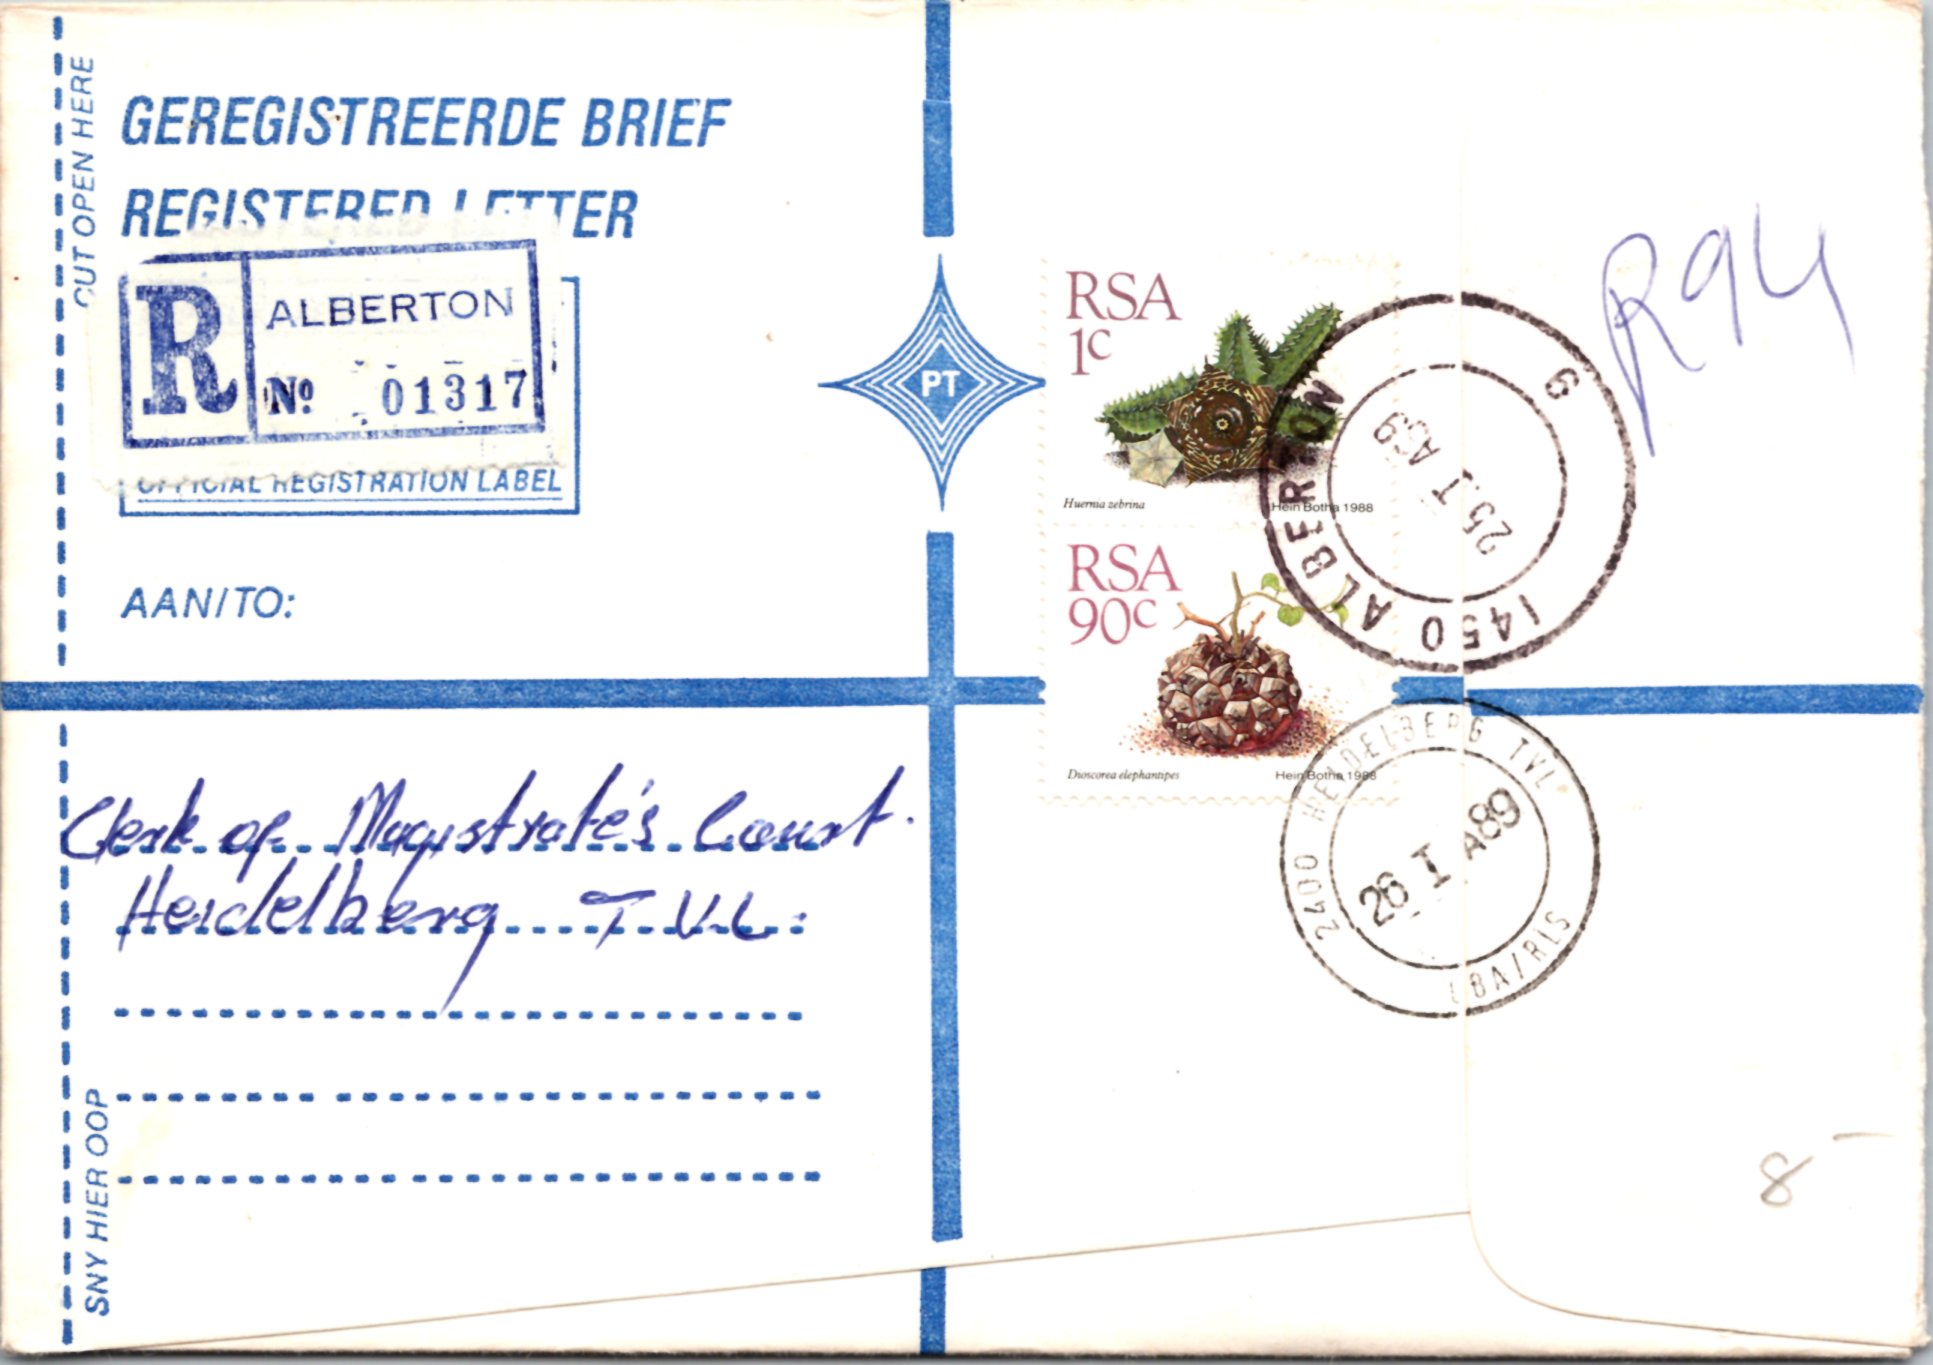 CUT OPEN HERE
GEREGISTREERDE BRIEF
REGISTERED LETTER
R
ALBERTON
Nº 01317
OFFICIAL REGISTRATION LABEL
AAN/TO:
Clerk of Magistrate's Court.
Heidelberg T.V.L.
SNY HIER OOP
PT
RSA
1c
Huernia zebrina
Hein Botha 1988
RSA
90c
Dioscorea elephantipes
Hein Botha 1988
1450 ALBERTON 9
25.I A89
2400 HEIDELBERG TVL
26 I A89
LBA/RLS
R94
8